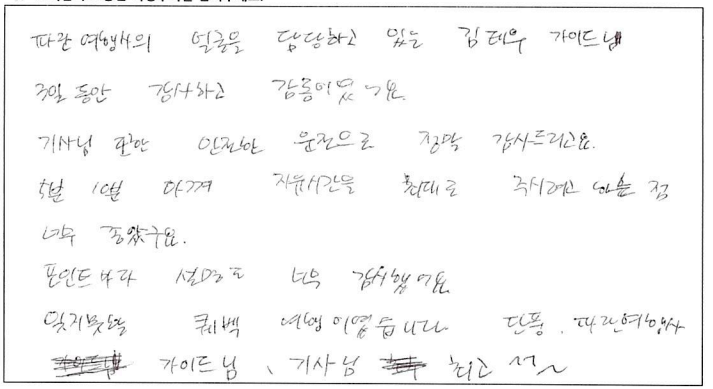 파란여행사의 얼굴을 담당하고 있는 김태우 가이드님
3일 동안 감사하고 감동이었어요.
기사님 또한 안전한 운전으로 정말 감사드리고요.
5분 1분 아껴 자유시간을 최대로 주시려고 하는 점
너무 좋았구요.
포인트마다 설명도 너무 감사했어요
잊지못할 퀘백 여행이였습니다 단풍, 파란여행사
가이드님, 기사님 최고